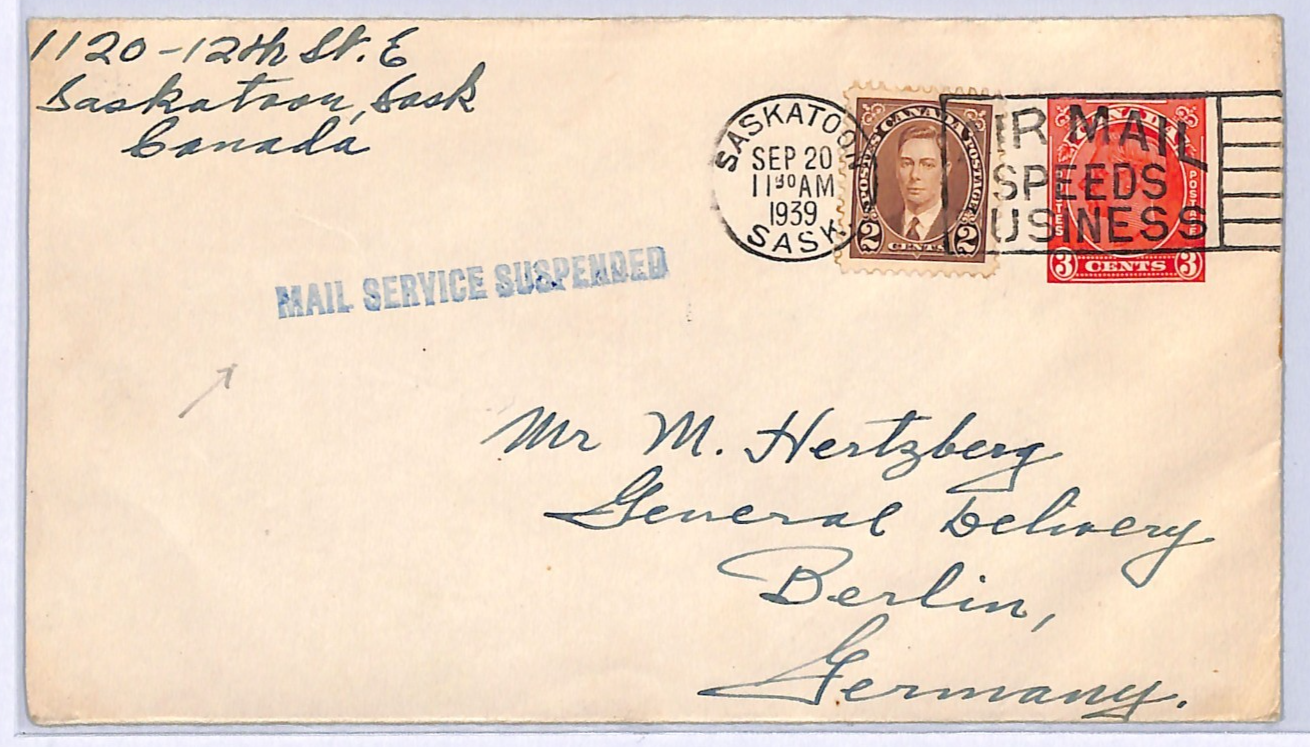 1120-12th St. E
Saskatoon, Sask
Canada
SASKATOON
SEP 20
11 30 AM
1939
SASK
POSTES CANADA POSTAGE
2 CENTS 2
IR MAIL
SPEEDS
USINESS
CANADA
POSTES
POSTAGE
3 CENTS 3
MAIL SERVICE SUSPENDED
Mr M. Hertzberg
General Delivery
Berlin,
Germany.